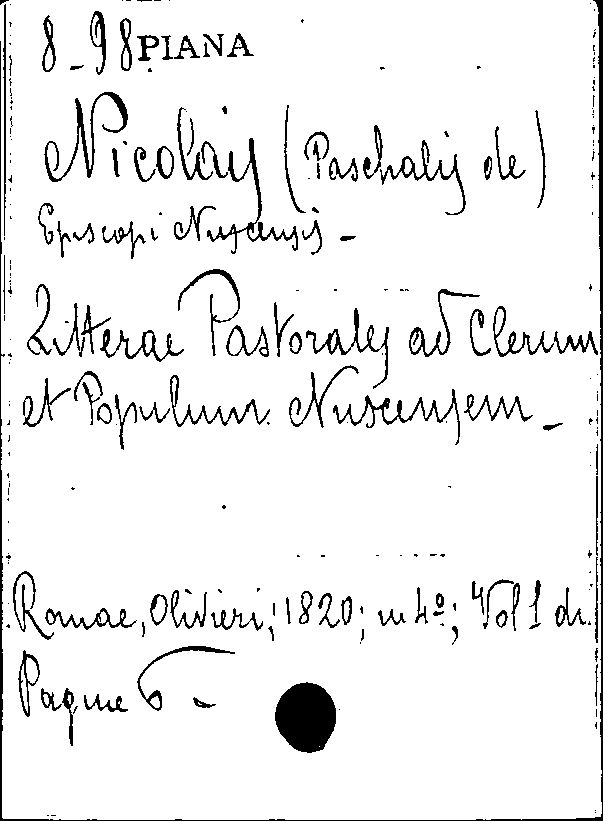 8-98 PIANA
Nicolais (Paschalis de)
Episcopi Nuscensis -
Litterae Pastorales ad Clerum
et Populum Nuscensem -
Romae, Olivieri, 1820; in 4º; Vol 1 di
Pagine 6 -